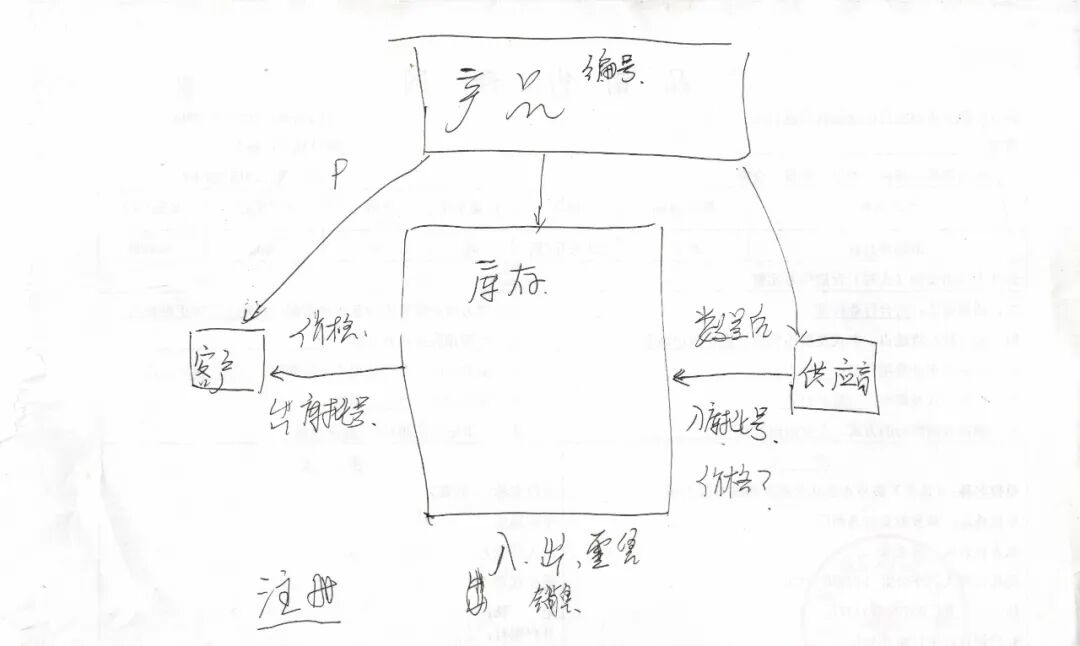 产品 编号
P
库存
价格
客户
出库批号
供应商
入库批号
价格?
入.出、零售
销售
注册